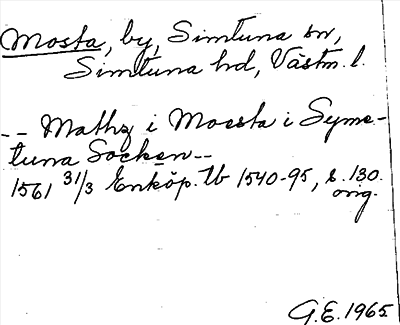 Mosta, by, Simtuna sn,
Simtuna hd, Västm. l.
-- Mathz i Moesta i Syme-
tuna Socken --
1561 31/3 Enköp. tb 1540-95, s. 130.
orig.
G.E. 1965